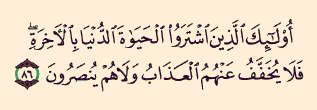 أُوْلَٰٓئِكَ ٱلَّذِينَ ٱشْتَرَوُاْ ٱلْحَيَوٰةَ ٱلدُّنْيَا بِٱلْأٓخِرَةِۖ
فَلَا يُخَفَّفُ عَنْهُمُ ٱلْعَذَابُ وَلَا هُمْ يُنصَرُونَ ٨٦